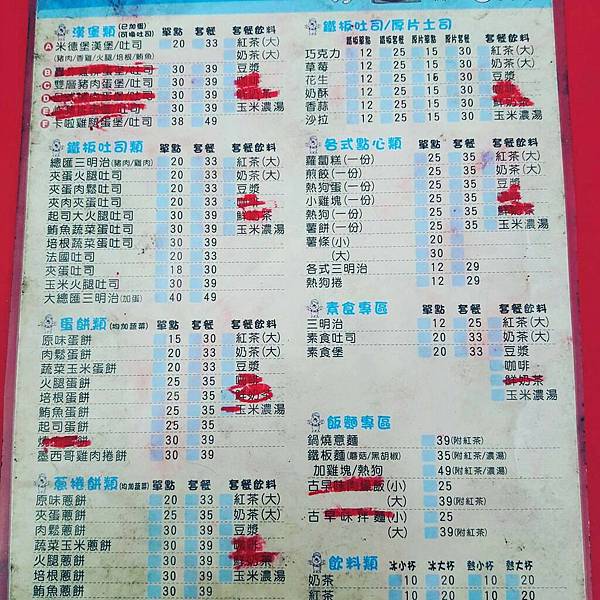 漢堡類(已加蛋)(可換吐司) 單點 套餐 套餐飲料
A 米德堡漢堡/吐司 20 33 紅茶(大)
(豬肉/香雞/火腿/培根/鮪魚) 奶茶(大)
B 30 39 豆漿
C 雙層豬肉蛋堡/吐司 30 39
D 30 39
E 30 39 玉米濃湯
F 卡啦雞腿蛋堡/吐司 38 49
鐵板吐司類 單點 套餐 套餐飲料
總匯三明治(豬肉/雞肉) 20 33 紅茶(大)
夾蛋火腿吐司 20 33 奶茶(大)
夾蛋肉鬆吐司 20 33 豆漿
夾肉夾蛋吐司 20 33
起司大火腿吐司 30 39 鮮奶茶
鮪魚蔬菜蛋吐司 30 39 玉米濃湯
培根蔬菜蛋吐司 30 39
法國吐司 20 33
夾蛋吐司 18 30
玉米火腿吐司 30 39
大總匯三明治(加蛋) 40 49
蛋餅類(均加蔬菜) 單點 套餐 套餐飲料
原味蛋餅 15 30 紅茶(大)
肉鬆蛋餅 20 33 奶茶(大)
蔬菜玉米蛋餅 20 33 豆漿
火腿蛋餅 25 35
培根蛋餅 25 35
鮪魚蛋餅 25 35 玉米濃湯
起司蛋餅 25 35
蛋餅 30 39
墨西哥雞肉捲餅 30 39
蔥捲餅類(均加蔬菜) 單點 套餐 套餐飲料
原味蔥餅 20 33 紅茶(大)
夾蛋蔥餅 25 35 奶茶(大)
肉鬆蔥餅 30 39 豆漿
蔬菜玉米蔥餅 30 39 咖啡
火腿蔥餅 30 39
培根蔥餅 30 39 玉米濃湯
鮪魚蔥餅 30 39
鐵板吐司/原片土司
鐵板單點 鐵板套餐 原片單點 原片套餐 套餐飲料
巧克力 12 25 15 30 紅茶(大)
草莓 12 25 15 30 奶茶(大)
花生 12 25 15 30 豆漿
奶酥 12 25 15 30
香蒜 12 25 15 30 鮮奶茶
沙拉 12 25 15 30 玉米濃湯
各式點心類 單點 套餐 套餐飲料
蘿蔔糕(一份) 25 35 紅茶(大)
煎餃(一份) 25 35 奶茶(大)
熱狗蛋(一份) 25 35 豆漿
小雞塊(一份) 25 35
熱狗(一份) 25 35 鮮奶茶
薯餅(一份) 25 35 玉米濃湯
薯條(小) 20
(大) 30
各式三明治 12 29
熱狗捲 12 29
素食專區 單點 套餐 套餐飲料
三明治 12 25 紅茶(大)
素食吐司 25 35 奶茶(大)
素食堡 25 35 豆漿
咖啡
鮮奶茶
玉米濃湯
飯麵專區
鍋燒意麵 39(附紅茶)
鐵板麵(蘑菇/黑胡椒) 35(附紅茶/濃湯)
加雞塊/熱狗 49(附紅茶/濃湯)
古早味肉燥飯(小) 25
(大) 39(附紅茶)
古早味拌麵(小) 25
(大) 39(附紅茶)
飲料類 冰小杯 冰大杯 熱小杯 熱大杯
奶茶 10 20 10 20
紅茶 10 20 10 20